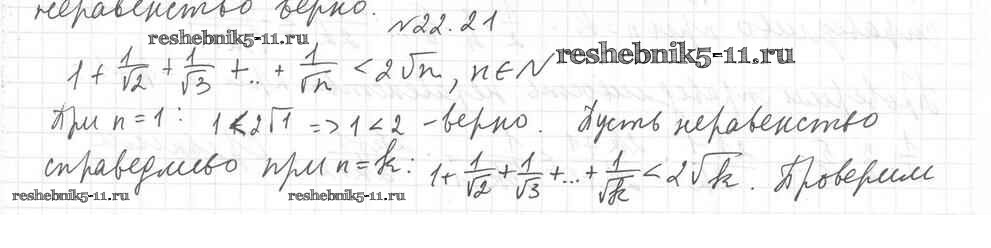 неравенство верно.
№22.21
reshebnik5-11.ru
1 + 1/√2 + 1/√3 + .. + 1/√n < 2√n, n ∈ N
reshebnik5-11.ru
При n = 1: 1 < 2√1 => 1 < 2 - верно. Пусть неравенство
справедливо при n = k: 1 + 1/√2 + 1/√3 + ... + 1/√k < 2√k. Проверим
reshebnik5-11.ru
reshebnik5-11.ru